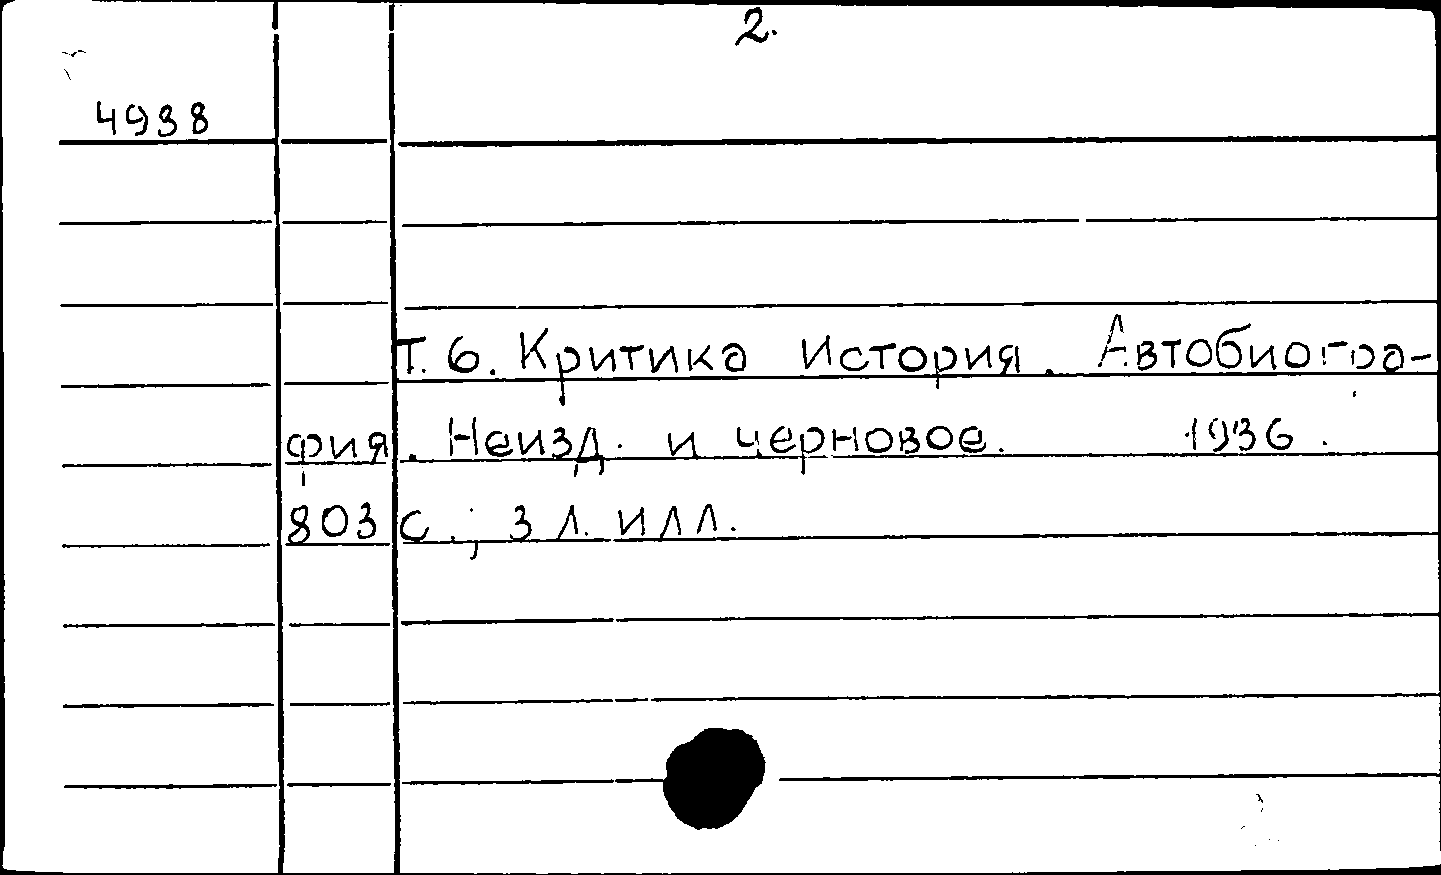 2.
4938
Т. 6. Критика История. Автобиогра-
фия. Неизд. и черновое. 1936.
803 с.; 3 л. илл.